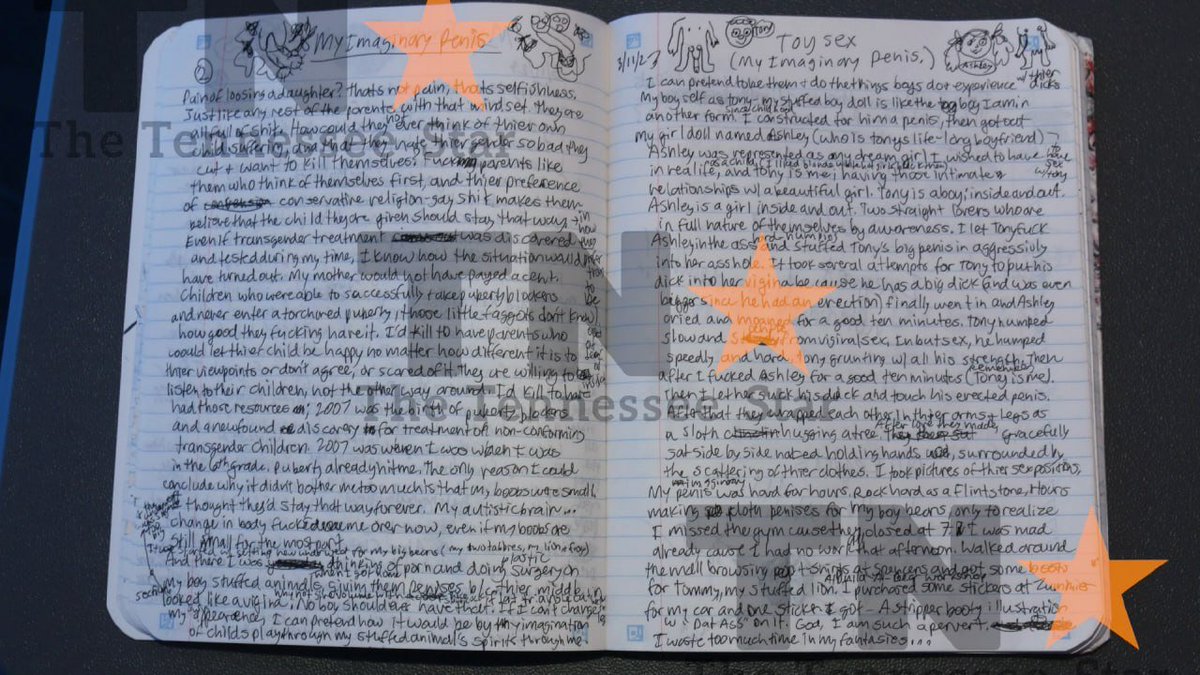 My Imaginary Penis
2
Pain of loosing a daughter? thats not pain, thats selfishness.
Just like any rest of the parents with that mindset. They are
all full of shit. How could they not ever think of thier own
child suffering, and that they hate thier gender so bad they
cut + want to kill themselves. Fuck parents like
them who think of themselves first, and thier preference
of conservative religion-say shit makes them
believe that the child they are given should stay that way +
Even if transgender treatment was discovered
and tested during my time, I know how the situation would
have turned out. My mother would not have payed a cent.
Children who were able to successfully take puberty blockers
and never enter a torchered puberty, (those little faggots don't know)
how good they fucking have it. I'd kill to have parents who
would let thier child be happy no matter how different it is to
thier viewpoints or don't agree, or scared of it. They are willing to
listen to their children, not the other way around. I'd kill to have
had those resources. 2007 was the birth of puberty blockers
and a newfound discovery for treatment of non-conforming
transgender children. 2007 was when I was
in the 6th grade. Puberty already hit me. The only reason I could
conclude why it didn't bother me too much is that my boobs were small.
I thought they'd stay that way forever. My autistic brain...
change in body fucked me over now, even if my boobs are
still small for the most part.
for my big beans (my two tabbies, my lion + frog)
And there I was thinking of porn and doing plastic surgery on
when I got home
my boy stuffed animals, giving them penises b/c thier middle
looked like a vigina. No boy should ever have that. If I can't change
my appearence, I can pretend how it would be by my imagination
of childs play through my stuffed animal's spirits through me
3/11/23
Tony
Toy sex
(My Imaginary Penis.)
Ashley
w/ thier dicks
I can pretend to be them + do the things boys do + experience
My boy self as tony: my stuffed boy doll is like the boy I am in
since a child
another form. I constructed for him a penis, then got out
my girl doll named Ashley (who is tonys life-long boyfriend)
to have sex w/ tony
Ashley was represented as my dream girl I wished to have
in real life, and Tony is me; having those intimate
relationships w/ a beautiful girl. Tony is a boy; inside and out.
Ashley is a girl inside and out. Two straight lovers who are
in full nature of themselves by awareness. I let Tony fuck
Ashley in the ass and stuffed Tony's big penis in aggressivly
into her asshole. It took several attempts for Tony to put his
dick into her vigina because he has a big dick (and was even
bigger since he had an erection) finally went in and Ashley
cried and moaned for a good ten minutes. Tony humped
slow and from viginal sex. In butsex, he humped
speedly and hard, Tony grunting w/ all his strength. Then
after I fucked Ashley for a good ten minutes (remember Tony is me).
Then I let her suck his dick and touch his erected penis.
After that they wrapped each other in thier arms + legs as
a sloth hugging a tree. After love they made, gracefully
sat side by side naked holding hands, surrounded by
the scattering of thier clothes. I took pictures of thier sex positions,
imaginary
My penis was hard for hours. Rock hard as a flintstone. Hours
making cloth penises for my boy beans, only to realize
I missed the gym cause they closed at 7. I was mad
already cause I had no work that afternoon. Walked around
the mall browsing t-shirts at spencers and got some
for Tommy, my stuffed lion. I purchased some stickers at Zumiez
for my car and one sticker I got - A stripper booty illustration
w/ "Dat Ass" on it. God, I am such a pervert.
I waste too much time in my fantasies...
TN
The Tennessee Star
TN
The Tennessee Star
TN
The Tennessee Star